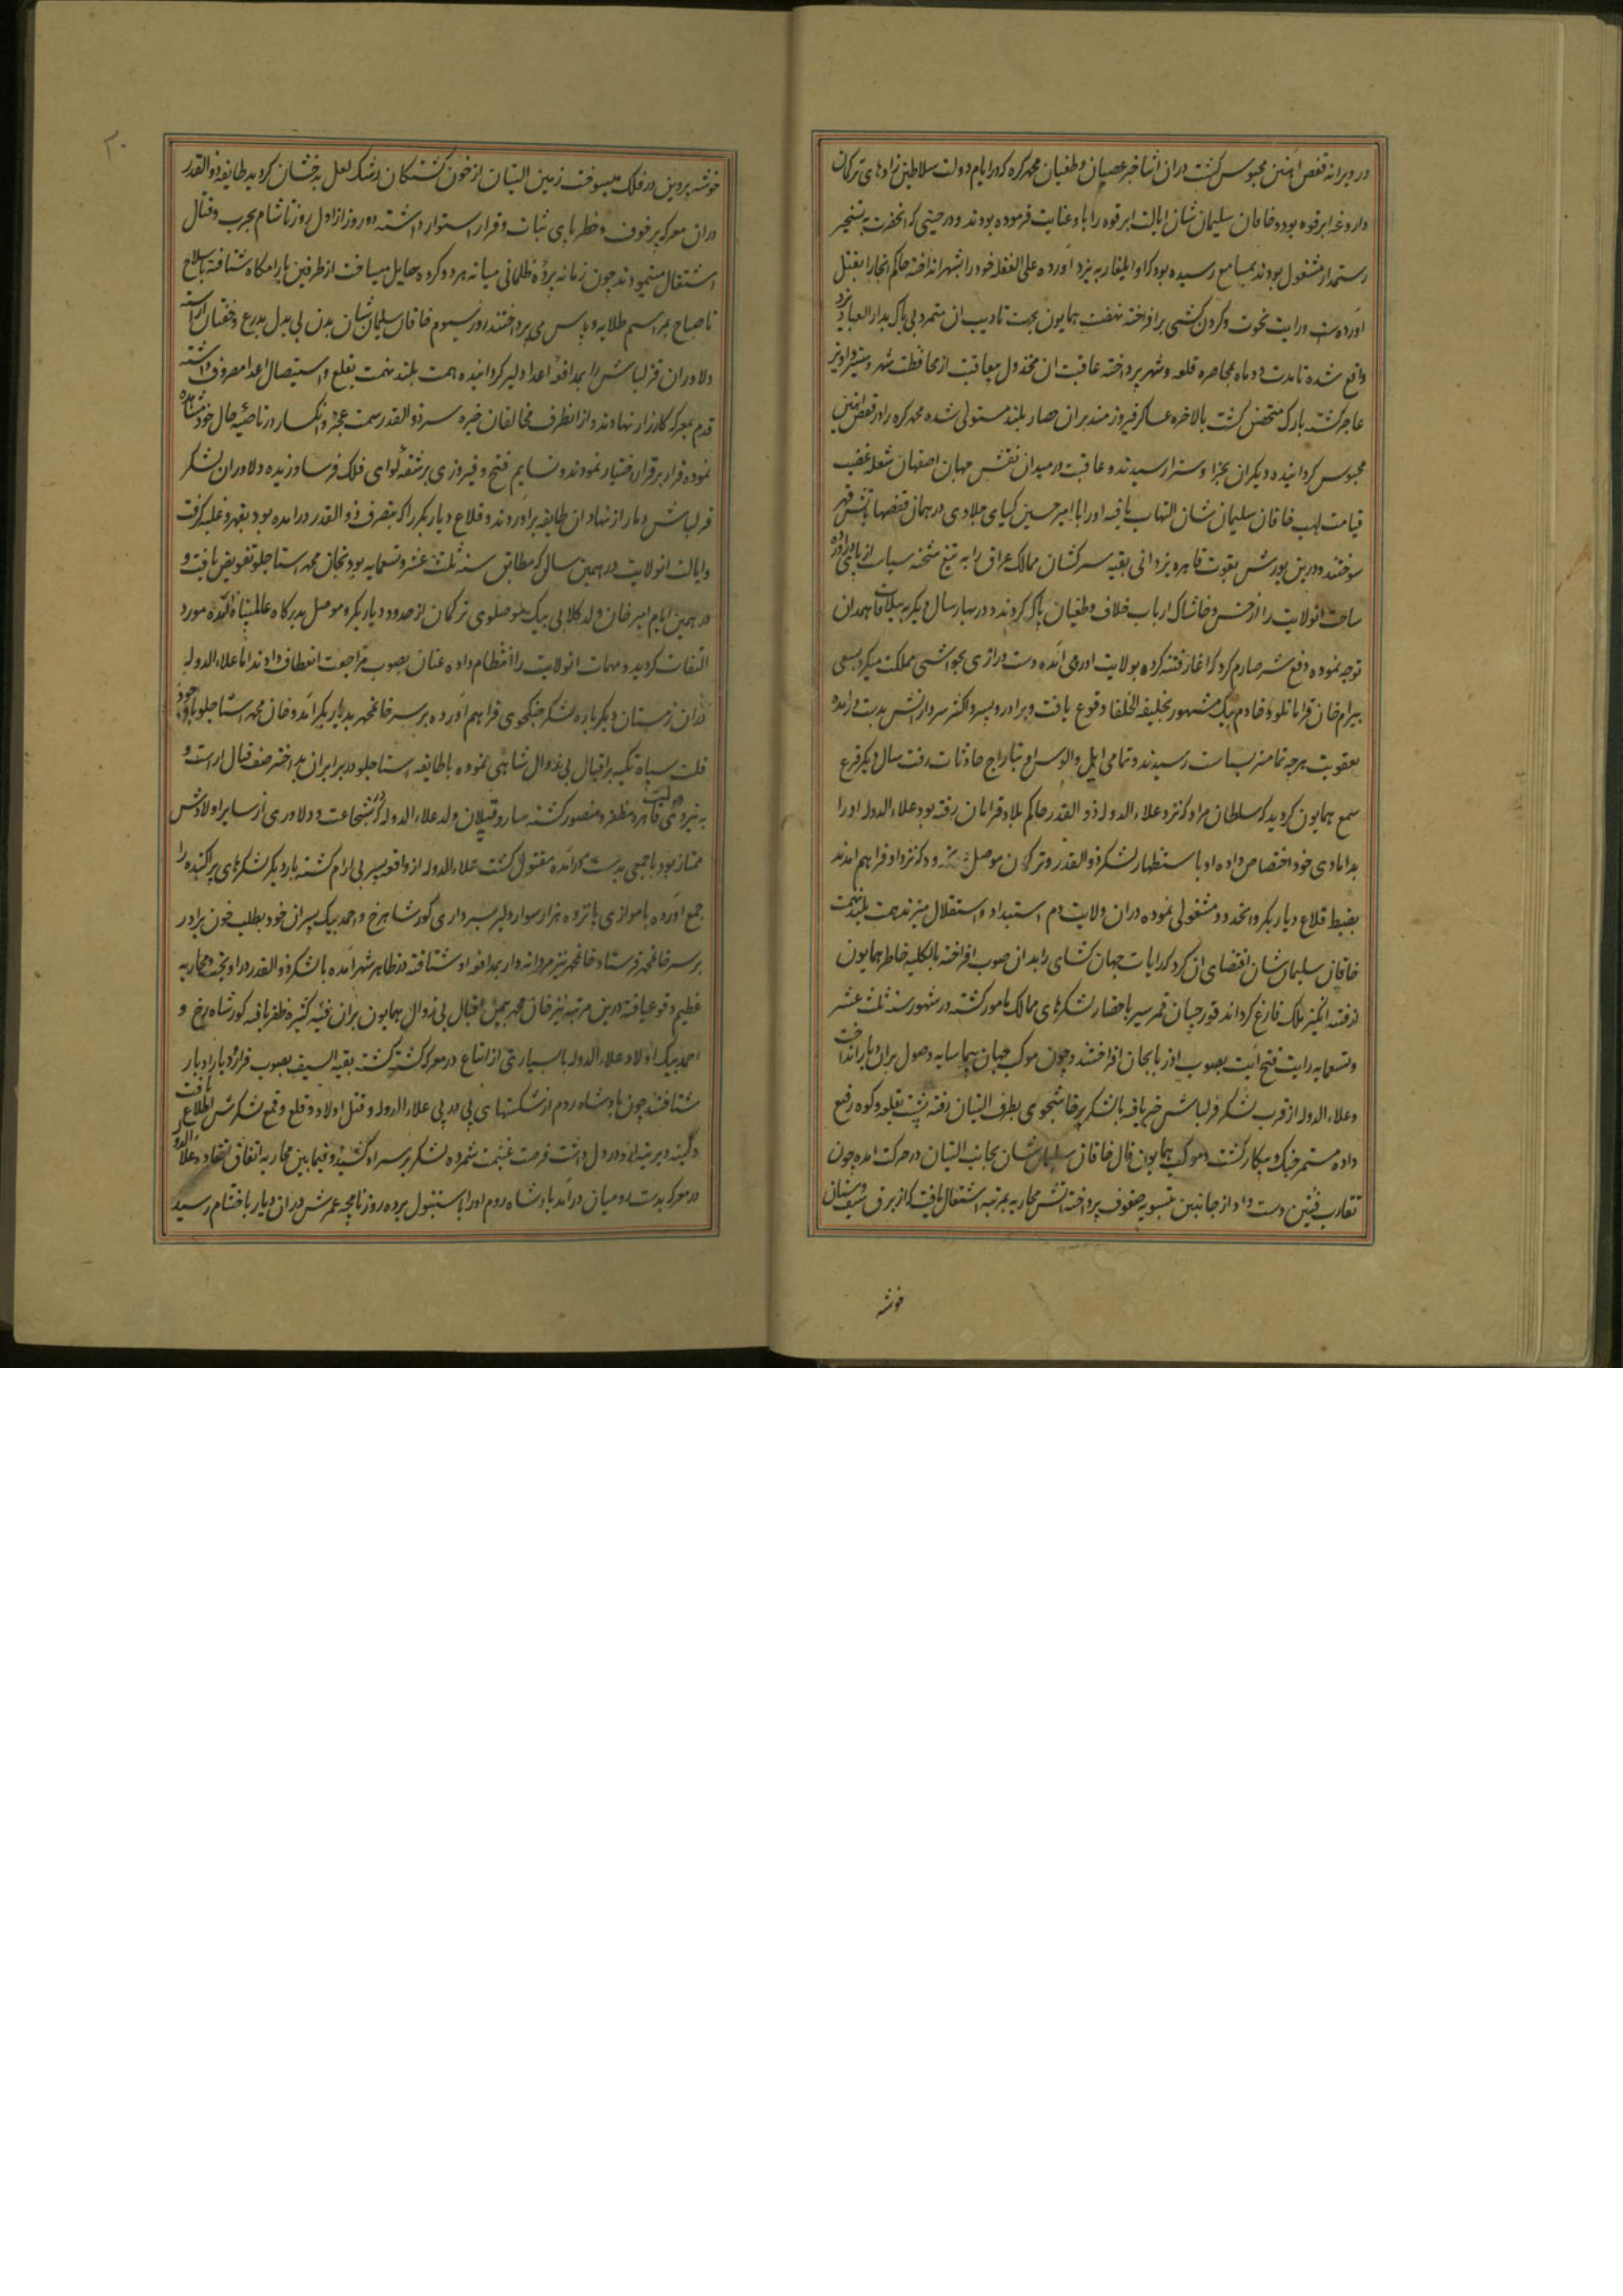 در ویرانه قفس آهنین محبوس گشت دران اثنا خبر عصیان و طغیان محمد کره که در ایام دولت سلاطین زادهای ترکمان
داروغه ابرقوه بود و خاقان سلیمان شان ایالت ابرقوه را باو عنایت فرموده بودند و در حینی که انحضرت به تسخیر
رستمدار مشغول بودند بمسامع رسیده بود که او ایلغار به یزد آورده علی الغفله خود را بشهر انداخته حاکم انجا را بقتل
آورده ست و رایت نخوت و کردن کشی برافراخته نهضت همایون بجهت تادیب ان متمرد بی باک بدار العباد یزد
واقع شده تا مدت دو ماه بمحاصره قلعه و شهر پرداخته عاقبت ان مخذول معاقبت از محافظت شهر و ستیز و آویز
عاجز کشته بارک متحصن کشت بالاخره عساکر فیروزمند بران حصار بلند مستولی شده محمد کره را در قفس آهنین
محبوس کردانیده و دیکران بجزا و سزا رسیدند و عاقبت در میدان نقش جهان اصفهان شعله غضب
قیامت لهب خاقان سلیمان شان التهاب یافته او را با امیر حسین کیای چلاوی در همان قفسها باتش قهر
سوختند و درین یورش بقوت قاهره یزدانی بقیه سرکشان ممالک عراق را به تیغ شحنه سیاست از پای درآورده
ساحت انولایت را از خس و خاشاک ارباب خلاف و طغیان پاک کردند و در بهار سال دیکر به ییلاقات همدان
توجه نموده دفع شر صارم کرد که اغاز فتنه کرده بولایت ارومی آمده دست درازی بحواشی مملکت میکرد بسعی
بیرام خان قرامانلو و خادم بیک مشهور بخلیفه الخلفا وقوع یافت و برادر و پسر و اکثر سردارانش بدست درآمده
بعقوبت هر چه تمامتر بسیاست رسیدند و تمامی ایل و الوس او بتاراج حادثات رفت سال دیکر قرع
سمع همایون کردید که سلطان مراد که نزد علاء الدوله ذوالقدر حاکم بلاد قرامان رفته بود علاء الدوله او را
بدامادی خود اختصاص داده او باستظهار لشکر ذوالقدر و ترکمان موصل و که نزد او فراهم امدند
بضبط قلاع دیاربکر و انحدود مشغولی نموده دران ولایت دم استبداد و استقلال میزند همت بلند نهمت
خاقان سلیمان شان اقتضای ان کرد که رایات جهان کشای را بدان صوب افراخته بالکلیه خاطر همایون
از فتنه انکیز ملک فارغ کرداند قورچیان قمر سیر باحضار لشکرهای ممالک مامور کشته در شهور سنه ثلث عشر
و تسعمایه رایت فتح آیت بصوب اذربایجان افراختند و چون موکب جهان پیما سایه وصول بران دیار انداخت
و علاء الدوله از قرب لشکر قزلباش خبر یافته با لشکر پرخاشجوی بطرف البستان رفته پشت بقلعه و کوه رفیع
داده مستمر جنک و پیکار کشت و موکب همایون فال خاقان سلیمان شان بجانب البستان در حرکت امده چون
تقارب فئتین دست داد از جانبین بتسویه صفوف پرداخته آتش محاربه بمرتبه اشتعال یافت که از برق سیف و سنان
خوشه
۲۰
خوشه پروین در فلک میسوخت زمین البستان از خون کشتکان رشک لعل بدخشان کردید طایفه ذوالقدر
دران معرکه پر خوف و خطر پای ثبات و قرار استوار داشته دو روز از اول روز تا شام بحرب و قتال
اشتغال مینمودند چون زمانه پرده ظلمانی میانه هر دو کروه حایل میساخت از طرفین بارامکاه شتافته با سلاح
تا صباح بمراسم طلایه و پاس می پرداختند روز سیوم خاقان سلیمان شان بدن بی بدل بدرع و خفتان آراسته
دلاوران قزلباش را بمدافعه اعدا دلیر کردانیده همت بلند نهمت بقلع و استیصال اعدا مصروف داشته
قدم بمعرکه کارزار نهادند و از انطرف مخالفان خیره سر ذوالقدر سمت عجز و انکسار در ناصیه حال خود مشاهده
نموده فرار بر قرار اختیار نمودند و نسایم فتح و فیروزی بر شقه لوای فلک فرسا وزیده دلاوران لشکر
قزلباش دمار از نهاد ان طایفه برآوردند و قلاع دیاربکر را که بتصرف ذوالقدر درامده بود بقهر و غلبه کرفت
و ایالت انولایت در همین سال که مطابق سنه ثلث عشر و تسعمایه بود بخان محمد استاجلو تفویض یافت و
در همین ایام امیر خان ولد کلابی بیک موصلوی ترکمان از حدود دیاربکر و موصل بدرکاه عالمپناه آمده مورد
التفات کردید و مهمات انولایت را انتظام داده عنان بصوب مراجعت انعطاف دادند اما علاء الدوله
دران زمستان دیکرباره لشکر جنکجوی فراهم آورده بر سر خانمحمد بدیاربکر آمد و خان محمد استاجلو با وجود
قلت سپاه تکیه بر اقبال بی زوال شاهی نموده با طایفه استاجلو در برابر ان بد اختر صف قتال اراست و
به نیروی دولت قاهره مظفر و منصور کشته ساروقپلان ولد علاء الدوله که در شجاعت و دلاوری از سایر اولادش
ممتاز بود با جمعی بدست درآمده مقتول کشت علاء الدوله از واقعه پسر بی ارام کشته بار دیکر لشکرهای پراکنده را
جمع آورده با موازی پانزده هزار سوار دلیر بسرداری کور شاهرخ و احمد بیک پسران خود بطلب خون برادر
بر سر خانمحمد فرستاد خانمحمد نیز مردانه وار بمدافعه او شتافته در ظاهر شهر آمده با لشکر ذوالقدر درآویخت و محاربه
عظیم وقوع یافته درین مرتبه نیز خان محمد بیمن اقبال بی زوال همایون بران فئه کثیره ظفر یافته کور شاهرخ و
احمد بیک اولاد علاء الدوله با بسیاری از اتباع در معرکه کشته کشته بقیه السیف بصوب فرار و بار ادبار
شتافتند چون پادشاه روم از شکستهای پی در پی علاء الدوله و قتل اولاد و قلع و قمع لشکرش اطلاع یافت
و کینه دیرینه او در دل داشت فرصت غنیمت شمرده لشکر بر سر او کشیده و فیمابین محاربه اتفاق افتاد و علاء الدوله
در معرکه بدست رومیان درآمد پادشاه روم او را باستنبول برده روزنامچه عمرش دران دیار باختتام رسید